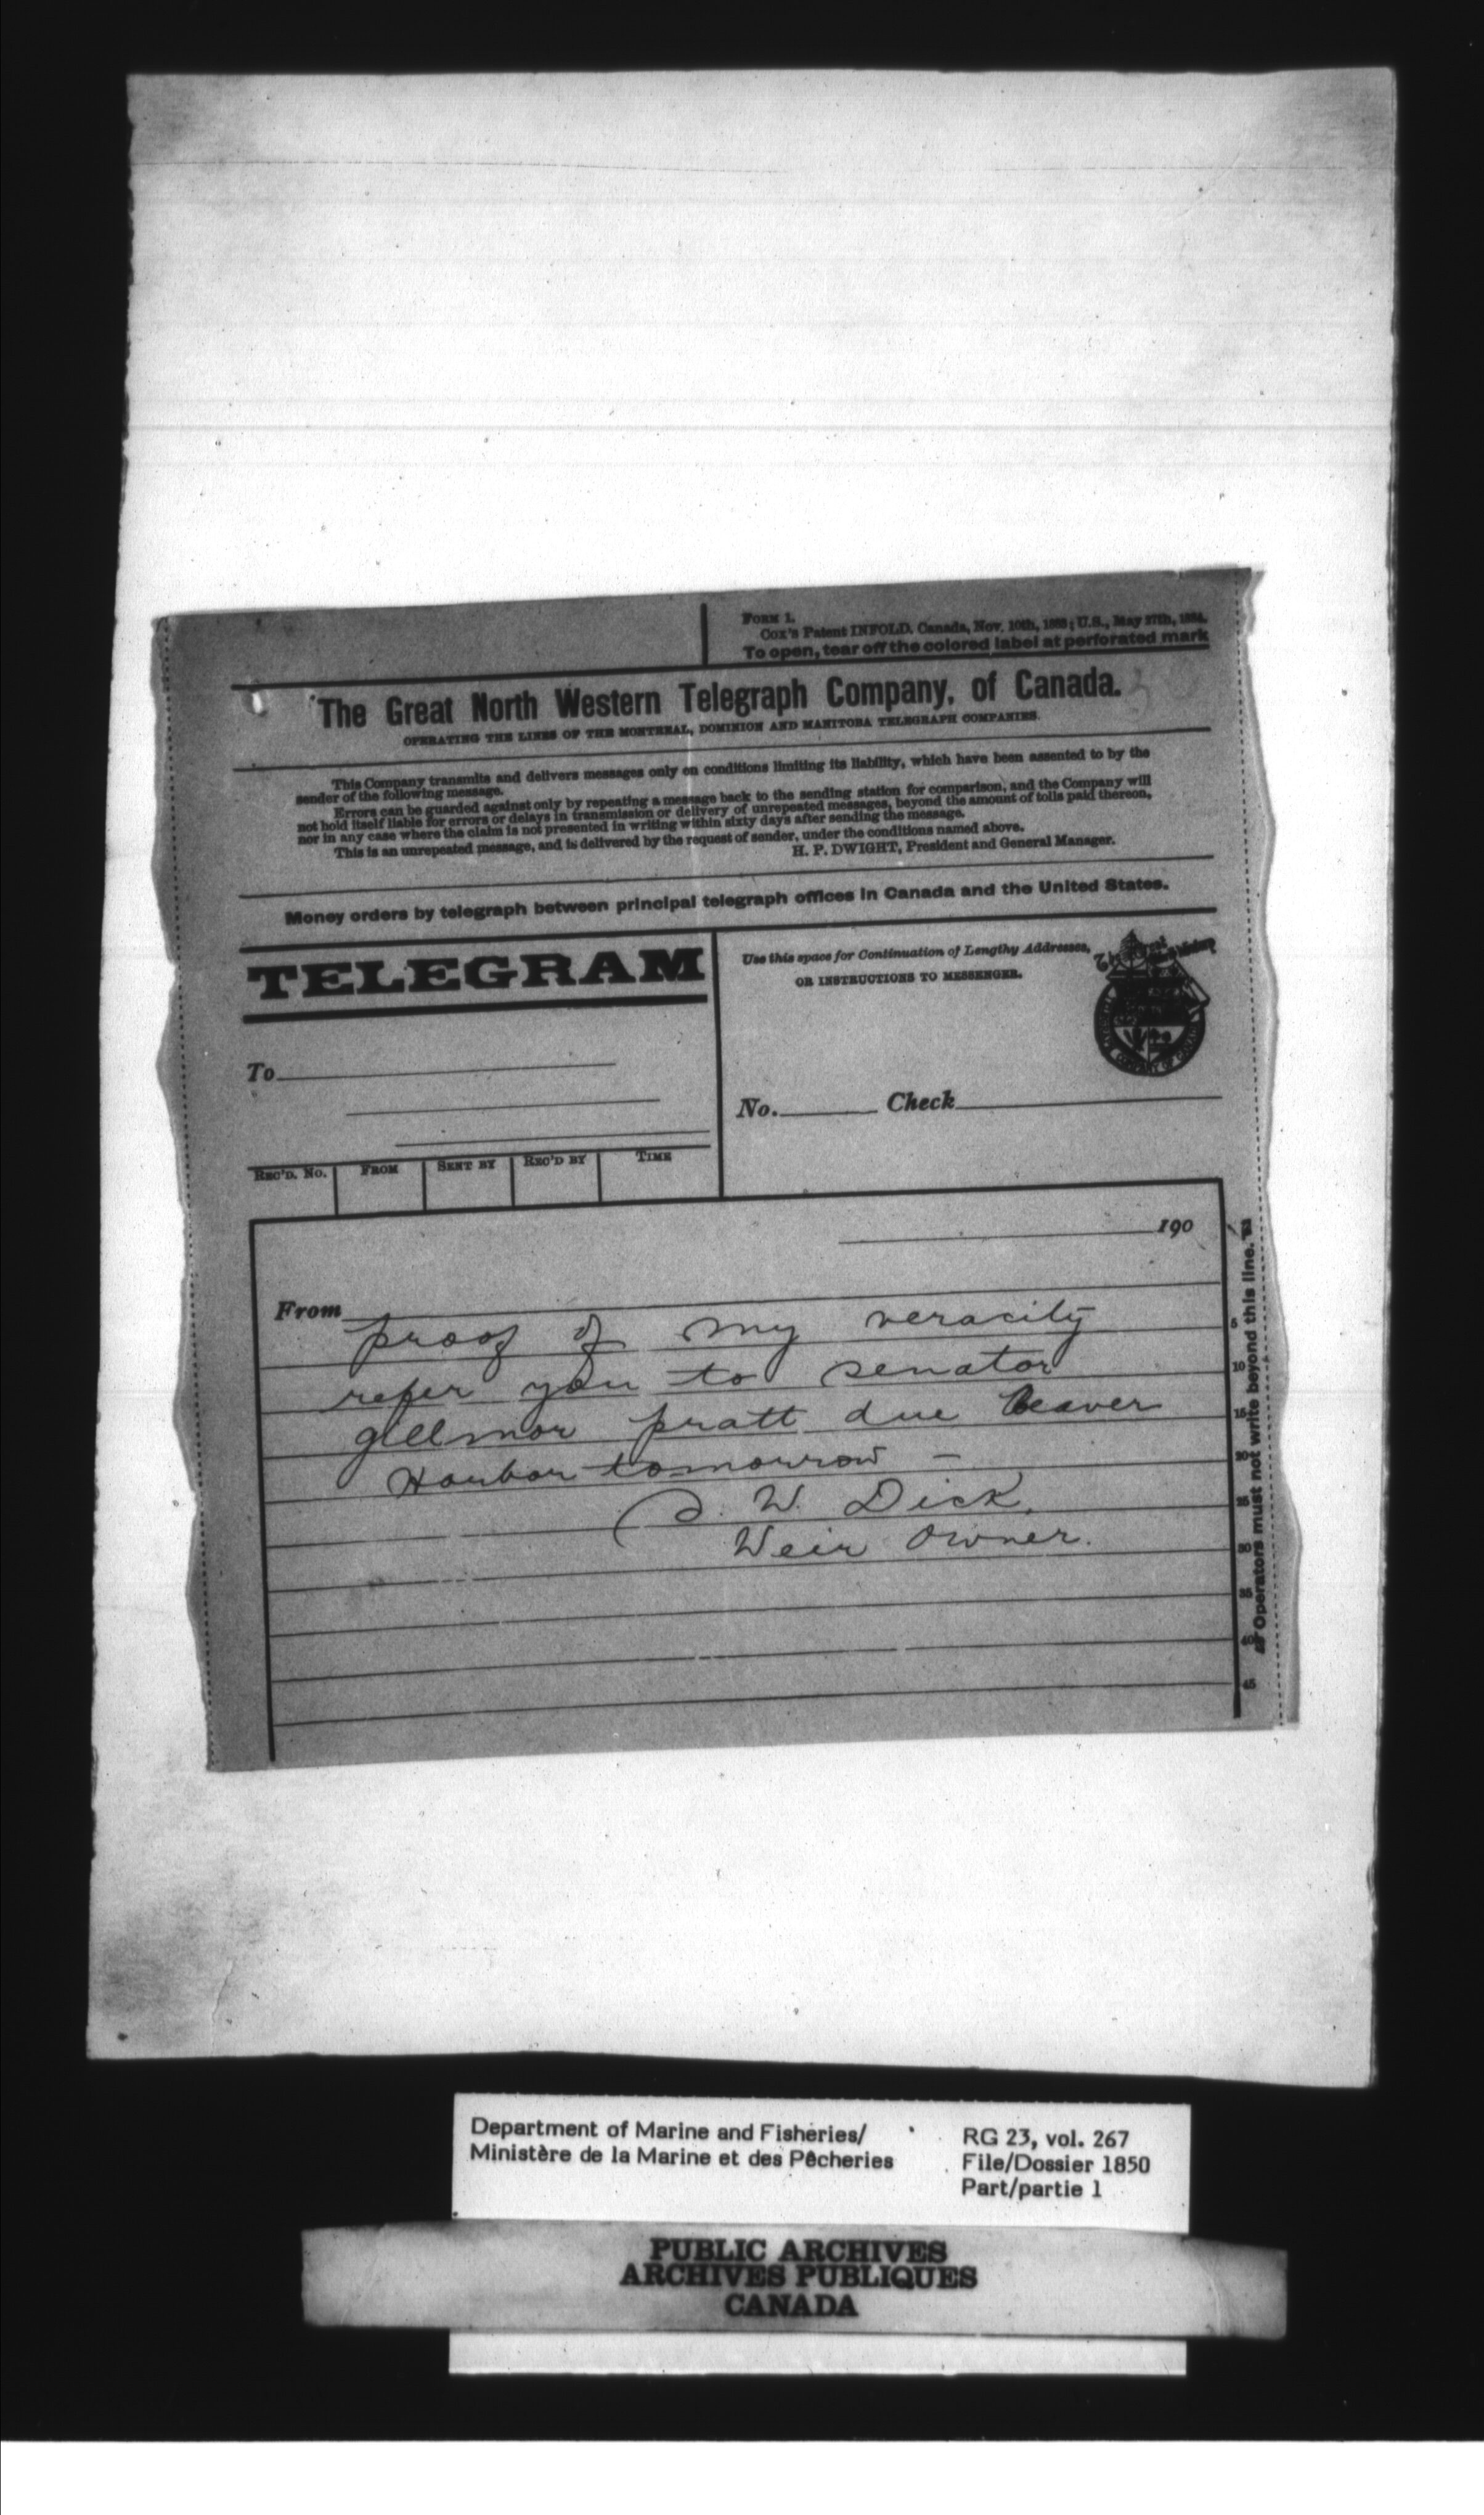 FORM 1.
Cox's Patent INFOLD. Canada, Nov. 10th, 1883; U.S., May 27th, 1884.
To open, tear off the colored label at perforated mark
The Great North Western Telegraph Company, of Canada.
OPERATING THE LINES OF THE MONTREAL, DOMINION AND MANITOBA TELEGRAPH COMPANIES.
This Company transmits and delivers messages only on conditions limiting its liability, which have been assented to by the
sender of the following message.
Errors can be guarded against only by repeating a message back to the sending station for comparison, and the Company will
not hold itself liable for errors or delays in transmission or delivery of unrepeated messages, beyond the amount of tolls paid thereon,
nor in any case where the claim is not presented in writing within sixty days after sending the message.
This is an unrepeated message, and is delivered by the request of sender, under the conditions named above.
H. P. DWIGHT, President and General Manager.
Money orders by telegraph between principal telegraph offices in Canada and the United States.
TELEGRAM
Use this space for Continuation of Lengthy Addresses,
OR INSTRUCTIONS TO MESSENGER.
To
No. Check
REC'D. No. FROM SENT BY REC'D BY TIME
190
From
proof of my veracity
refer you to senator
gillmor pratt due Beaver
Harbor tomorrow —
S. W. Dick,
Weir Owner.
5
10
15
20
25
30
35
40
45
Operators must not write beyond this line.
Department of Marine and Fisheries/
Ministère de la Marine et des Pêcheries
RG 23, vol. 267
File/Dossier 1850
Part/partie 1
PUBLIC ARCHIVES
ARCHIVES PUBLIQUES
CANADA